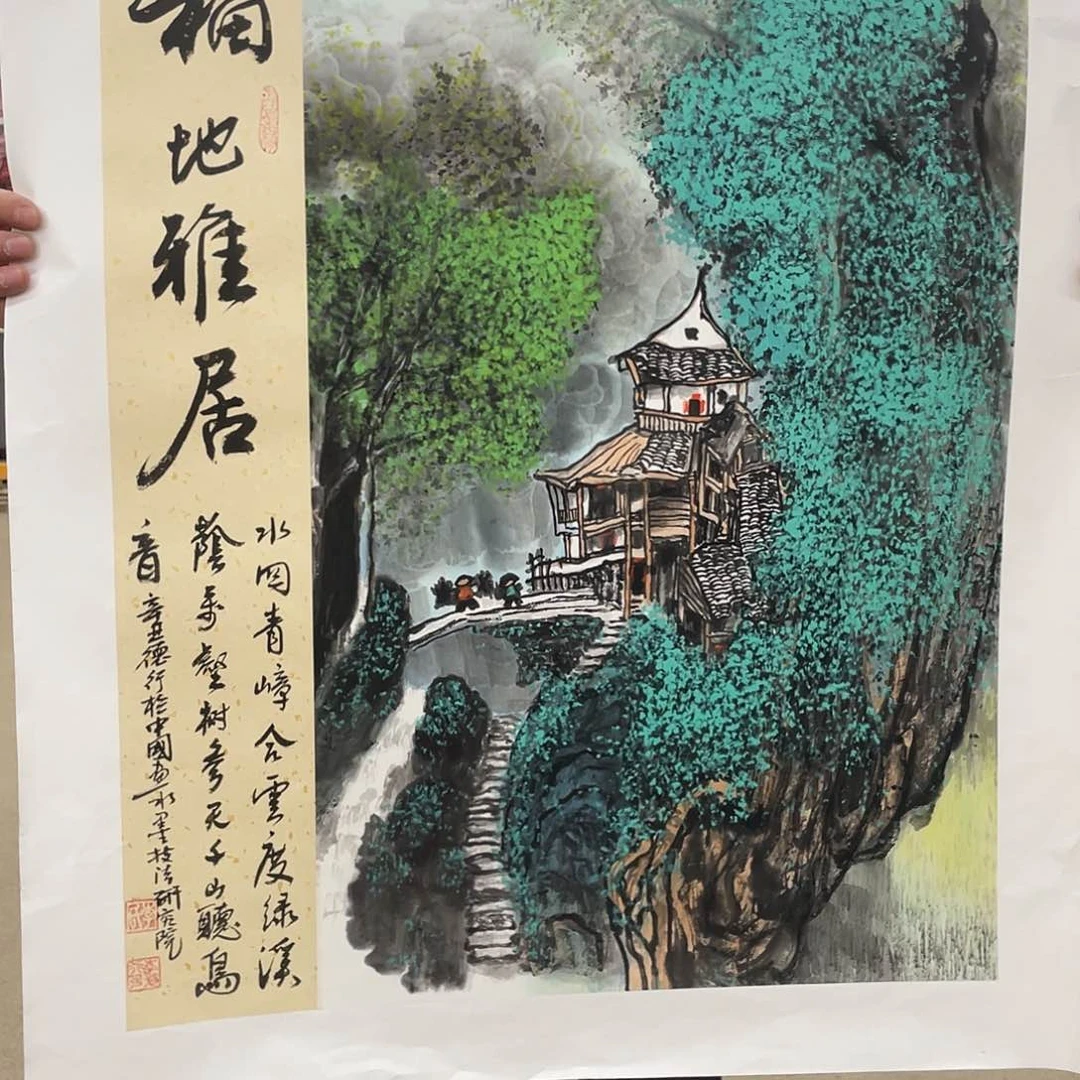 福地雅居
水回青嶂合雲度绿溪
蔭萬壑树参天千山聽鳥
音 辛丑德行於中國画水墨技法研究院